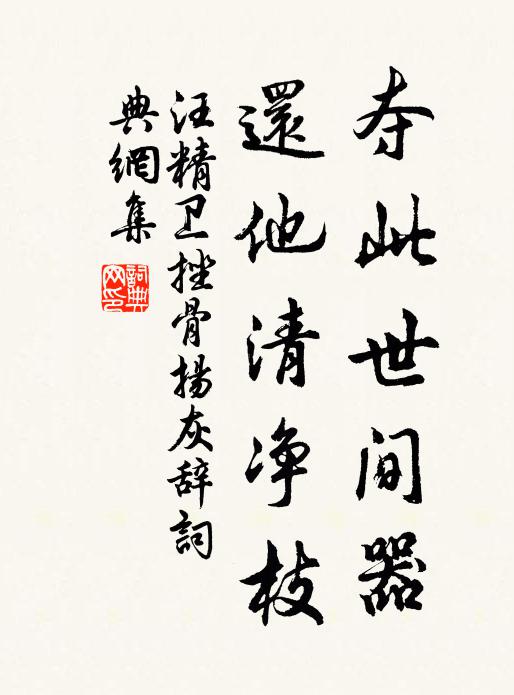 夺此世间器
還他清净枝
汪精卫挫骨揚灰辞詞
典網集
詞典网印